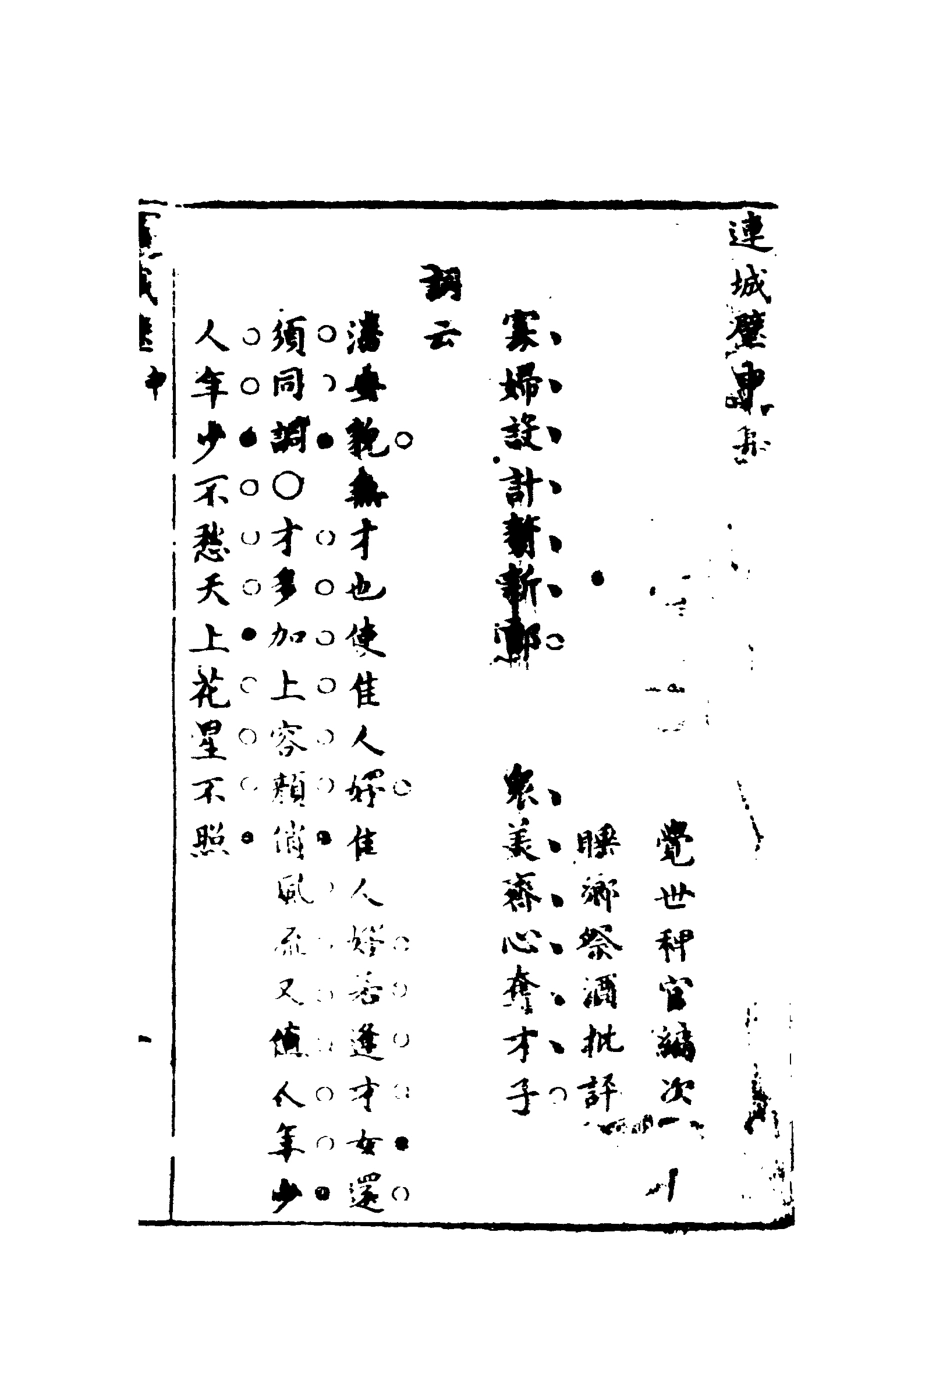 連城璧申集
覺世稗官編次
睡鄉祭酒批評
寡婦設計贅新郎　衆美齊心奪才子
詞云
潘安貌無才也使佳人好佳人好若逢才女還
須同調○才多加上容顏俏風流又值人年少
人年少不愁天上花星不照
連城璧申
一